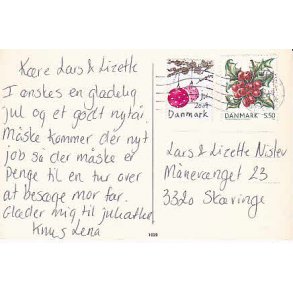 Kære Lars & Lizette
I ønskes en glædelig
jul og et godt nytår.
Måske kommer der nyt
job så der måske er
penge til en tur over
at besøge mor far.
Glæder mig til juleaften
Knus Lena
Jul
2004
Danmark
DANMARK 5.50
Lars & Lizette Nislev
Månevænget 23
3320 Skævinge
1028